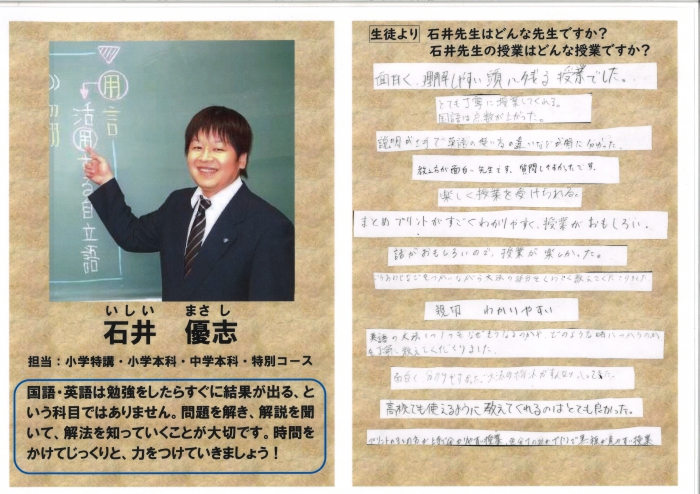 用言
活用する自立語
いしい まさし
石井 優志
担当：小学特講・小学本科・中学本科・特別コース
国語・英語は勉強をしたらすぐに結果が出る、と
いう科目ではありません。問題を解き、解説を聞
いて、解法を知っていくことが大切です。時間を
かけてじっくりと、力をつけていきましょう！
生徒より 石井先生はどんな先生ですか？
石井先生の授業はどんな授業ですか？
面白く、理解しやすい頭に残る授業でした。
とても丁寧に授業してくれる。
国語は点数が上がった。
説明が上手で英語の使い方の違いなどが
教え方が面白い先生です。質問しやすかったです。
楽しく授業を受けられる。
まとめプリントがすごくわかりやすく、授業がおもしろい。
話がおもしろいので、授業が楽しかった。
親切 わかりやすい
英語の文法
丁寧に教えてくださりました。
面白く
高校でも使えるように教えてくれるのはとても良かった。